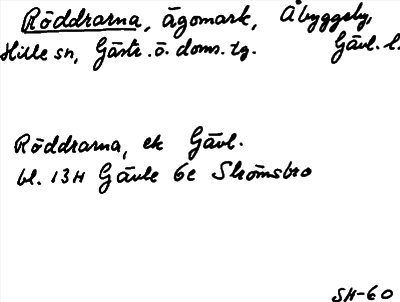 Röddrarna, ägomark, Åbyggeby,
Hille sn, Gästr. ö. doms. tg. Gävl. l.
Röddrarna, ek Gävl.
bl. 13H Gävle 6c Strömsbro
SH-60